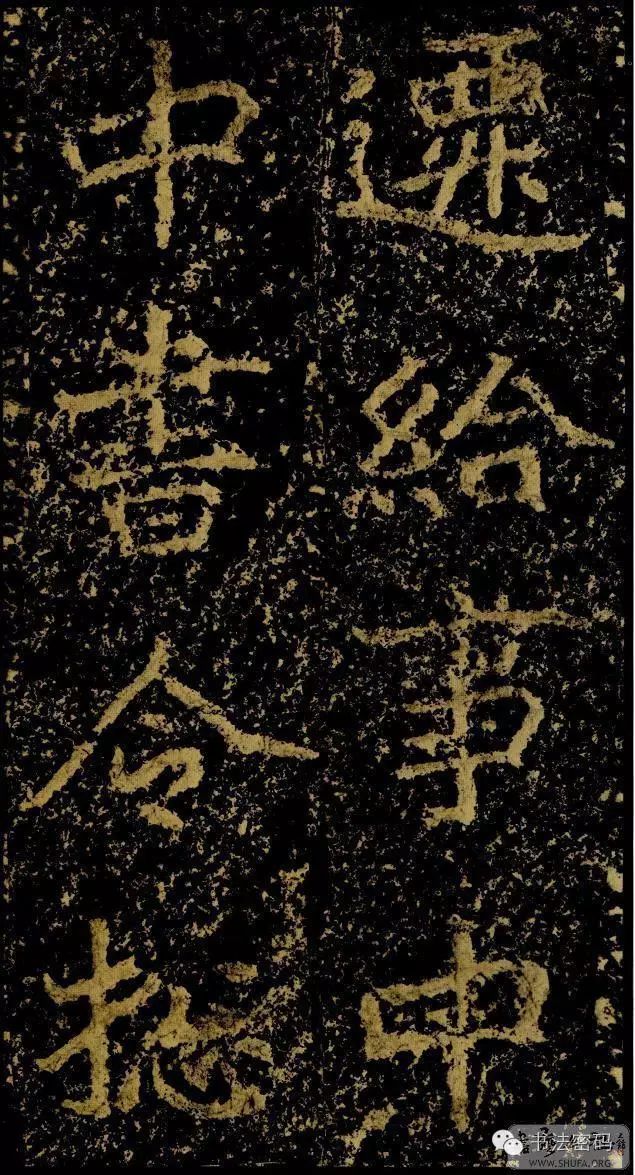 遷給事中
中書令捴
书法密码
WWW.SHUFA.ORG